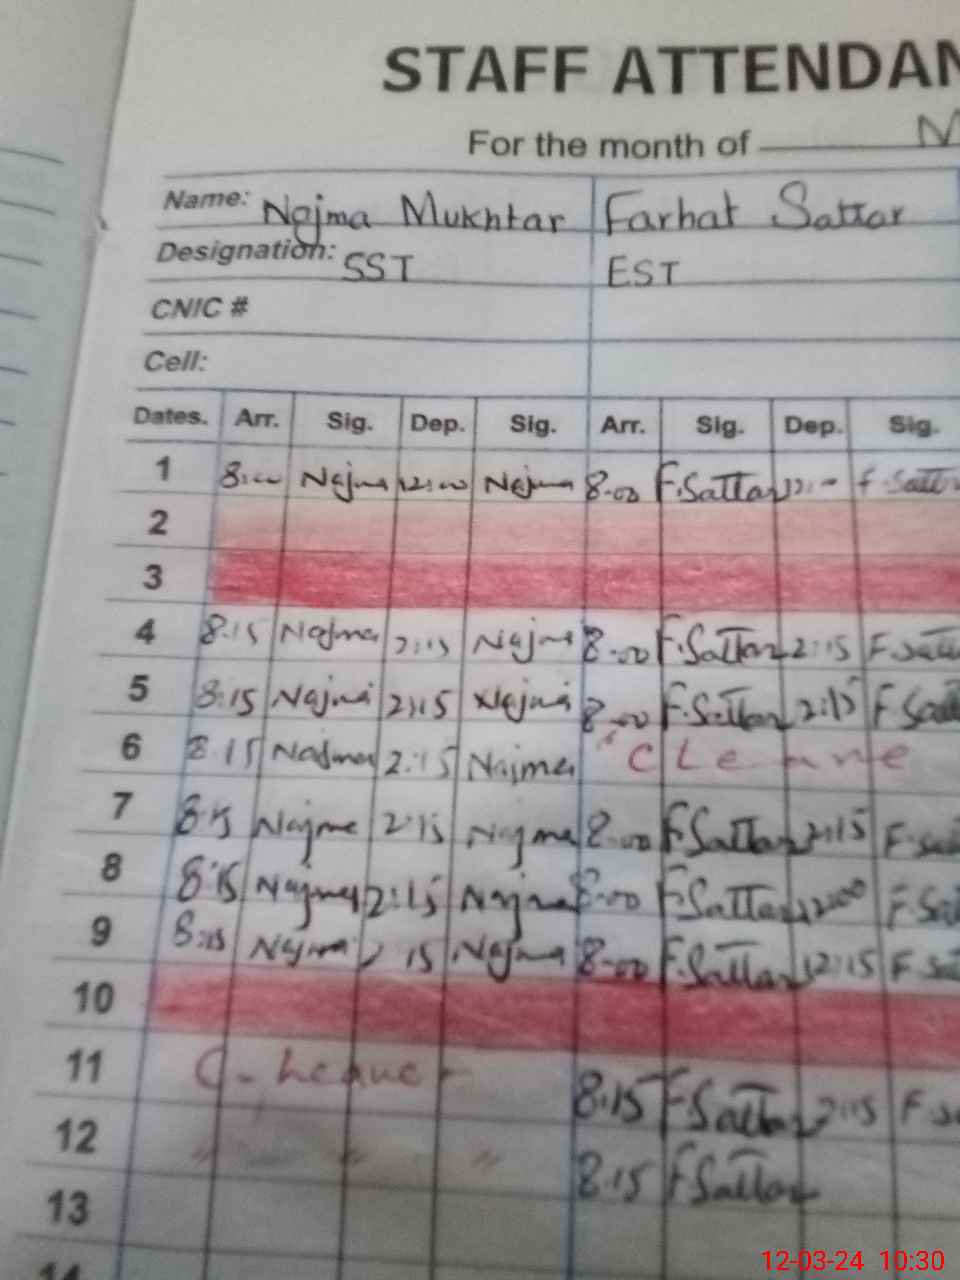 STAFF ATTENDAN
For the month of
Name: Najma Mukhtar Farhat Sattar
Designation: SST EST
CNIC #
Cell:
Dates. Arr. Sig. Dep. Sig. Arr. Sig. Dep. Sig.
1 8:00 Najma 12:00 Najma 8-00 F.Sattar F.Sattar
2
3
4 8:15 Najma 2:15 Najma 8-00 F.Sattar 2:15 F.Satt
5 8:15 Najma 2:15 Najma 8-00 F.Sattar 2:15 F.Satt
6 8:15 Najma 2:15 Najma C Leave
7 8:15 Najma 2:15 Najma 8-00 F.Sattar 2:15 F.Sat
8 8:15 Najma 2:15 Najma 8-00 F.Sattar 12:00 F.Sat
9 8:15 Najma 2 15 Najma 8-00 F.Sattar 12:15 F.Sat
10
11 C-Leave 8:15 F.Sattar 2:15 F.S
12 " " " 8:15 F.Sattar
13
14
12-03-24 10:30